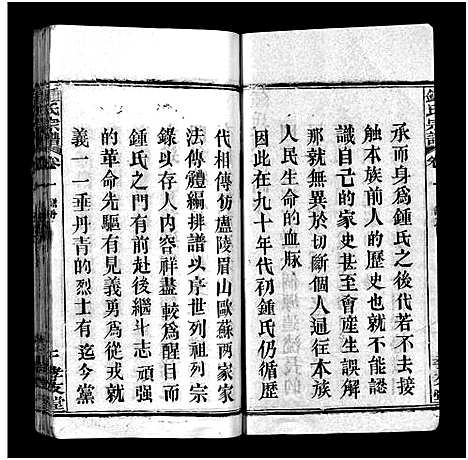 鍾氏宗譜
承而身爲鍾氏之後代若不去接
觸本族前人的歷史也就不能認
識自己的家史甚至會産生誤解
那就無異於切斷個人過往本族
人民生命的血脉
因此在九十年代初鍾氏仍循歷
代相傳仿盧陵眉山歐蘇兩家家
法傳體編排譜以序世列祖列宗
錄以存人内容祥盡較爲醒目而
鍾氏之門有前赴後繼斗志頑强
的革命先驅有見義勇爲從戎就
義一一垂丹青的烈士有迄今黨
氏宗譜 卷一
孝友堂